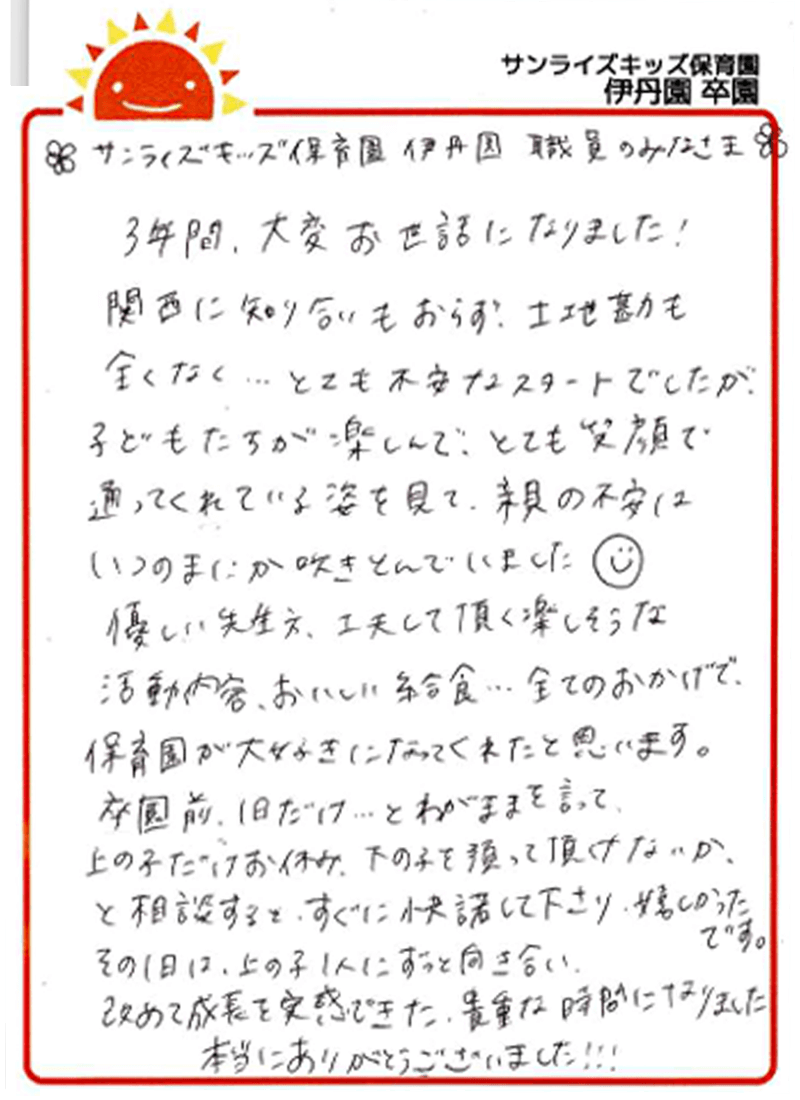 サンライズキッズ保育園
伊丹園 卒園
サンライズキッズ保育園 伊丹園 職員のみなさま
3年間、大変お世話になりました!
関西に知り合いもおらず、土地勘も
全くなく…とても不安なスタートでしたが、
子どもたちが楽しんで、とても笑顔で
通ってくれている姿を見て、親の不安は
いつのまにか吹きとんでいました
優しい先生方、工夫して頂く楽しそうな
活動内容、おいしい給食…全てのおかげで、
保育園が大好きになってくれたと思います。
卒園前、1日だけ…とわがままを言って、
上の子だけお休み、下の子を預って頂けないか、
と相談すると、すぐに快諾して下さり、嬉しかった
です。
その1日は、上の子1人にずっと向き合い、
改めて成長を実感できた、貴重な時間になりました
本当にありがとうございました!!!